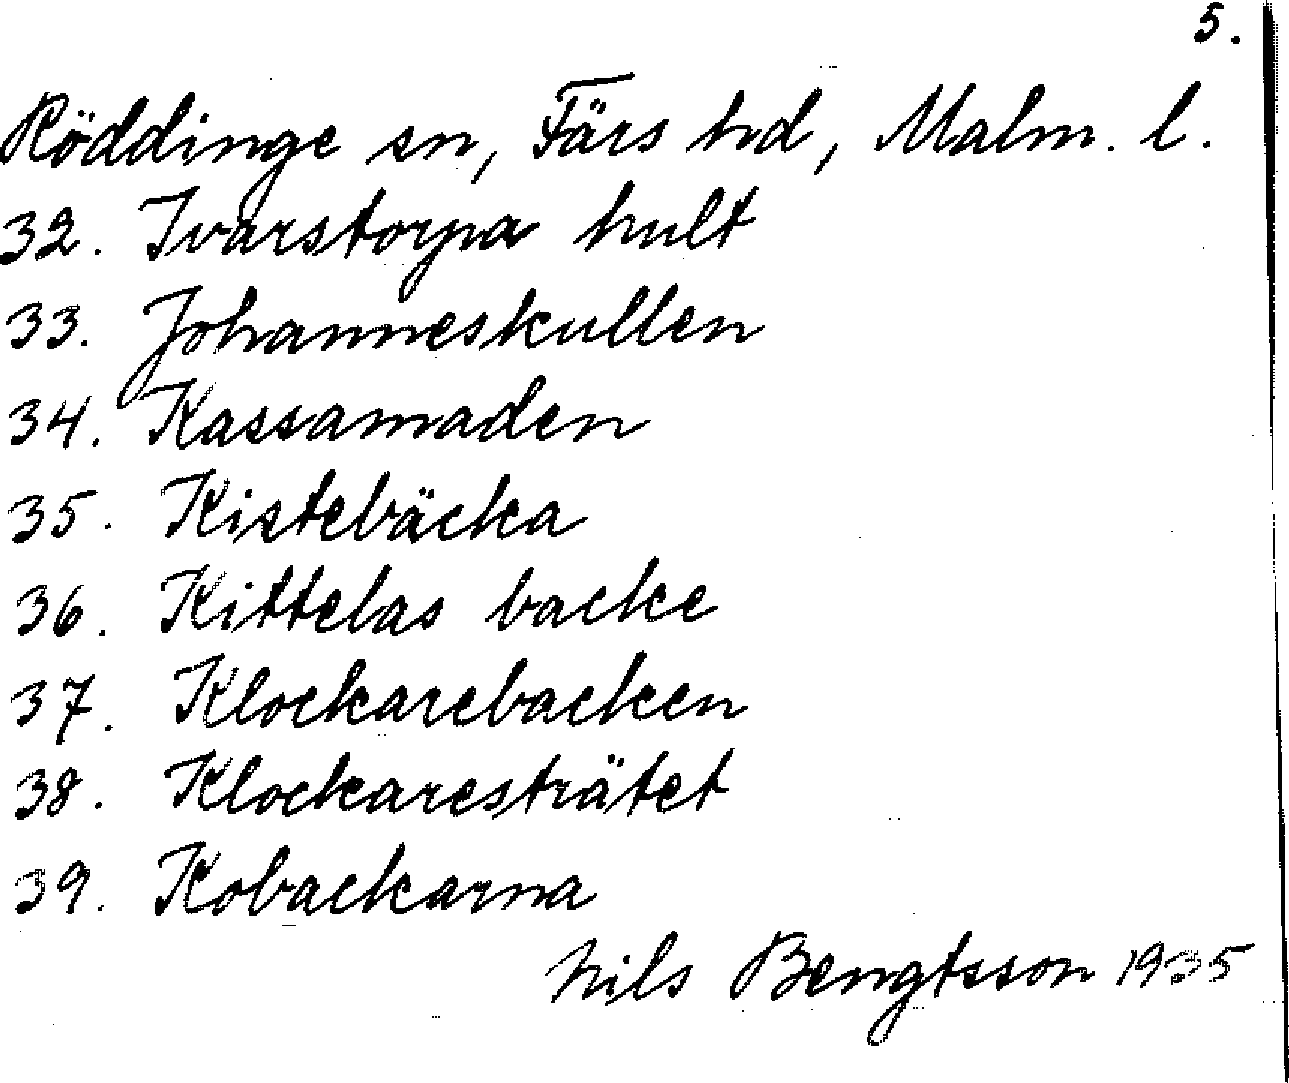 5.
Röddinge sn, Färs hd, Malm. l.
32. Ivarstorpa hult
33. Johanneskullen
34. Kassamaden
35. Kistebäcka
36. Kittelas backe
37. Klockarebacken
38. Klockaresträtet
39. Kobackarna
Nils Bengtsson 1935